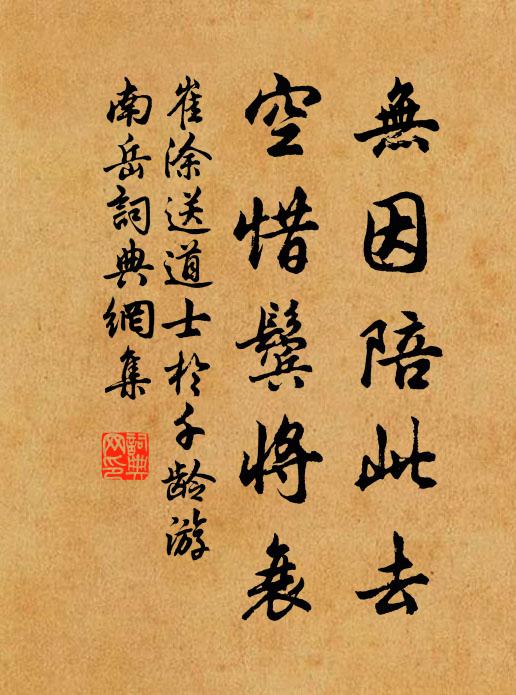 無因陪此去
空惜鬢將衰
崔涂送道士於千齡游
南岳詞典網集
詞典
网印